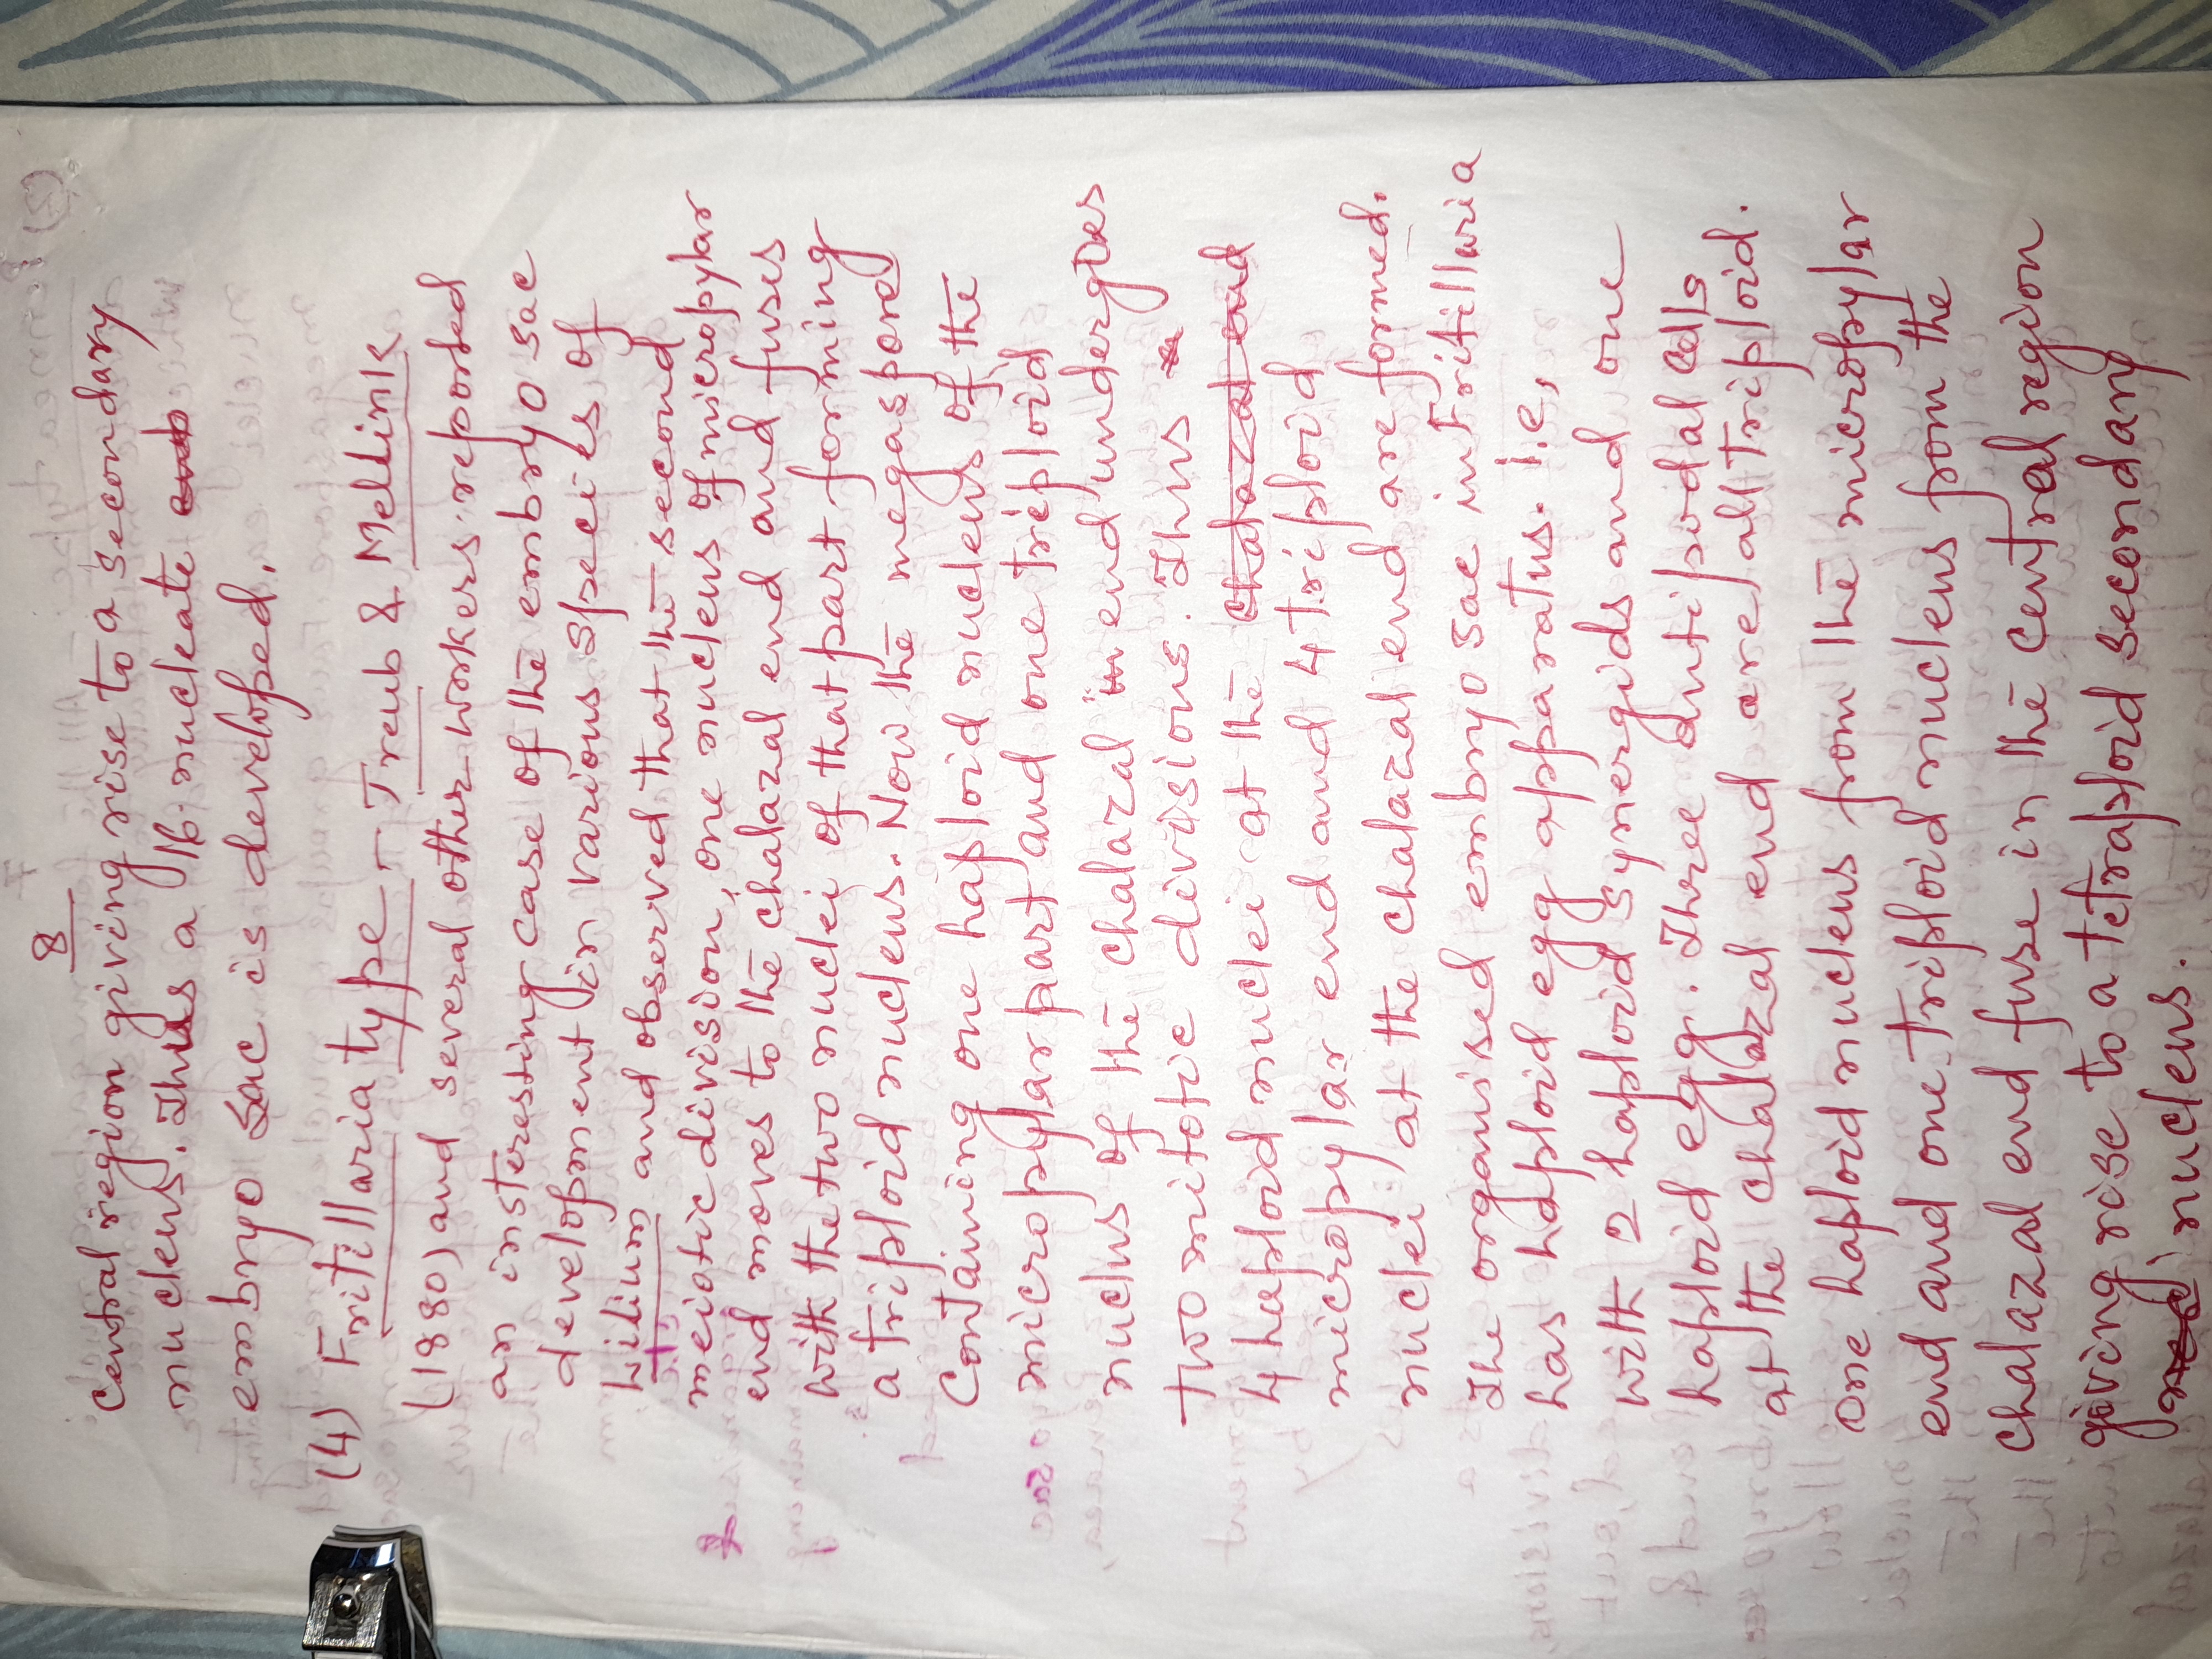 8
central region giving rise to a secondary
nucleus. Thus a 16-nucleate
embryo sac is developed.
(4) Fritillaria type - Treub & Mellink
(1880) and several other workers reported
an instersting case of the embryo sac
development in various species of
Lilium and observed that the second
meiotic division, one nucleus of micropylar
end moves to the chalazal end and fuses
with the two nuclei of that part forming
a triploid nucleus. Now the megaspore
containing one haploid nucleus of the
micropylar part and one triploid
nuclus of the chalazal end undergoes
two mitotic divisions. Thus
4 haploid nuclei at the chalazal end
micropylar end and 4 triploid
nuclei at the chalazal end are formed.
The organised embryo sac in Fritillaria
has haploid egg apparatus. i.e,
with 2 haploid synergids and one
haploid egg. Three antipodal cells
at the chalazal end are all triploid.
One haploid nucleus from the micropylar
end and one triploid nucleus from the
chalazal end fuse in the central region
giving rise to a tetraploid secondary
nucleus.